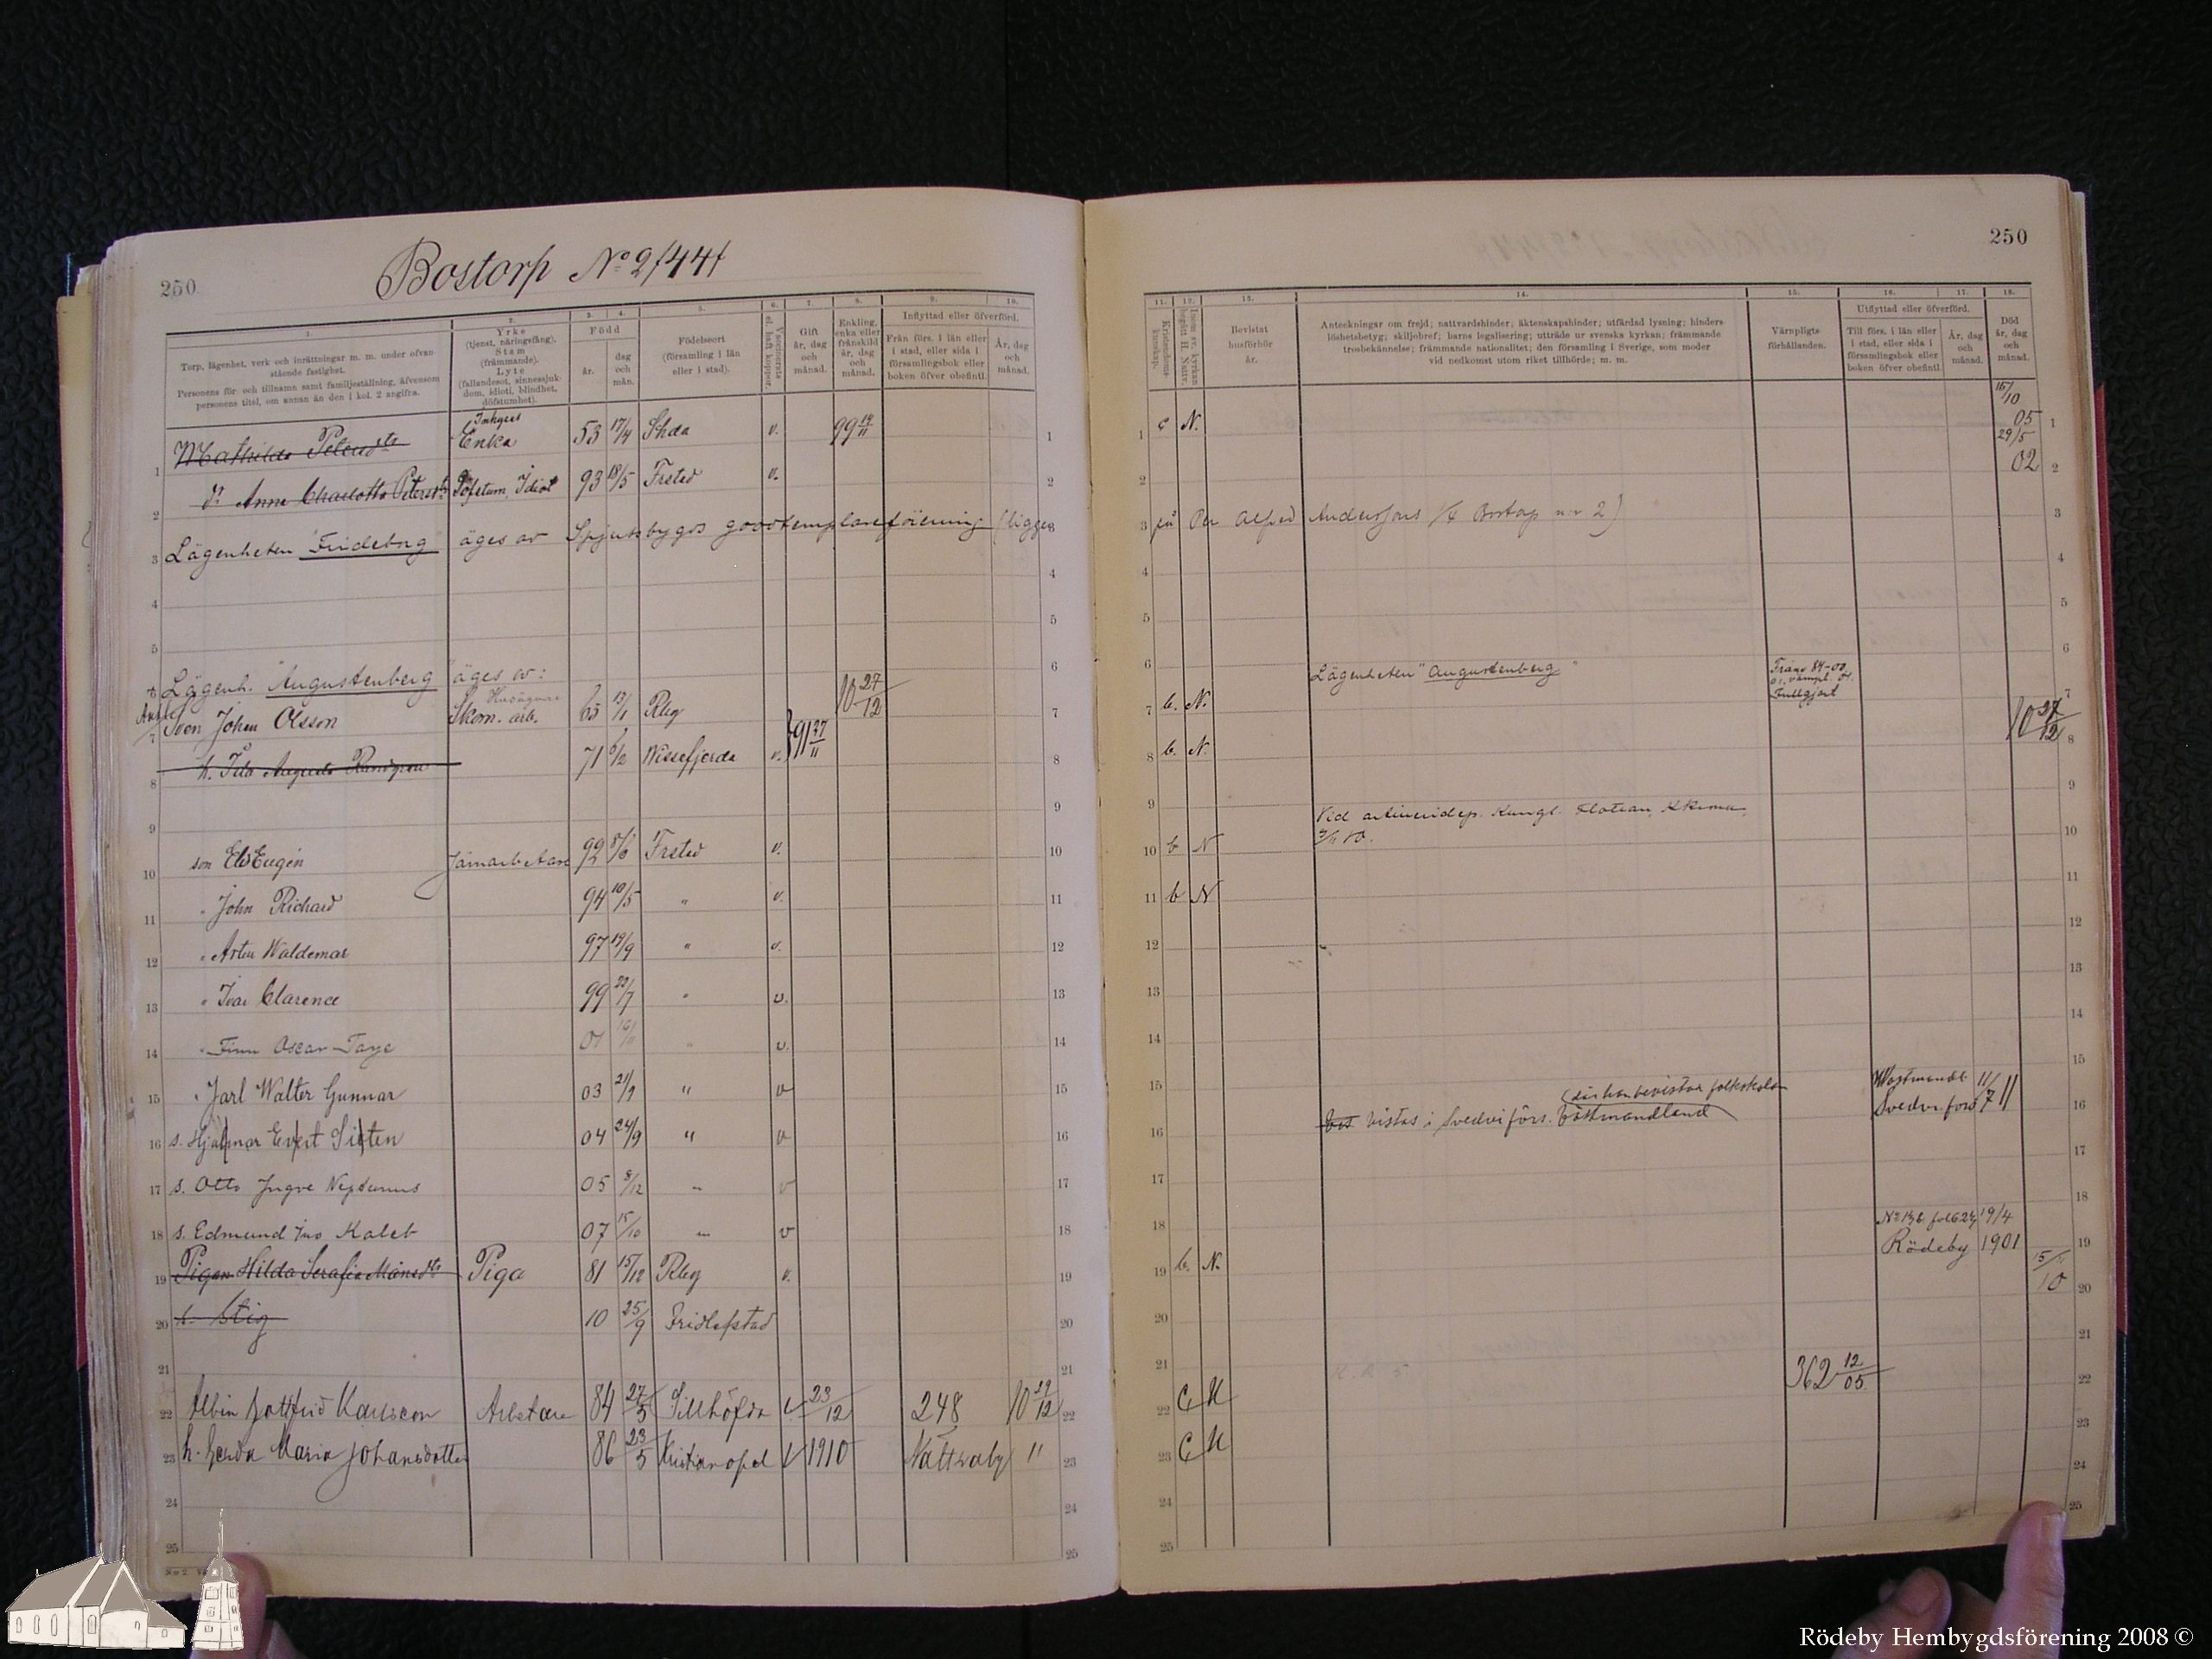 250
Bostorp No 2 /441
1.
Torp, lägenhet, verk och inrättningar m. m. under ofvan-
stående fastighet.
Personens för- och tillnamn samt familjeställning, äfvensom
personens titel, om annan än den i kol. 2 angifra.
2.
Yrke
(tjenst, näringsfång).
Stam
(främmande).
Lyte
(fallandesot, sinnessjuk-
dom, idioti, blindhet,
döfstumhet).
3. 4.
Född
år.
dag
och
mån.
5.
Födelseort
(församling i län
eller i stad).
6.
Vaccinerats
el. haft koppor.
7.
Gift
år, dag
och
månad.
8.
Enkling,
enka eller
frånskild
år, dag
och
månad.
9. 10.
Inflyttad eller öfverförd.
Från förs. i län eller
i stad, eller sida i
församlingsbok eller
boken öfver obefintl.
År, dag
och
månad.
1 Mathilda Petersdtr Inhyses Enka 53 17/4 v. 99
2 dr Anna Charlotta Petersdtr Döfstum, Idiot 93 18/5 Frstad v.
3 Lägenheten "Frideborg" äges av Spjutsbygds goodtemplareförening (ligger
4
5
6 Lägenh. "Augustenberg" äges av:
7 Sven Johan Olsson Skom. arb. 65 13/1 Rby 91 27/11 10 27/12
8 h. Ida Augusta 71 6/2 Wissefjerda v.
9
10 son Elis Eugén Järnarbetare 92 8/6 Frstad v.
11 " John Richard 94 10/5 " v.
12 " Artur Waldemar 97 19/9 " v.
13 " Ivar Clarence 99 23/7 " v.
14 " Finn Oscar Tage 01 " v.
15 " Jarl Walter Gunnar 03 21/9 " v
16 s. Hjalmar Evert Sixten 04 24/9 " v
17 s. Otto Yngve Neptunus 05 8/12 " v
18 s. Edmund Ivo Kaleb 07 15/10 " v
19 Pigan Hilda Serafia Månsdtr Piga 81 15/12 Rby v.
20 s. Stig 10 25/9 Fridlefstad
21
22 Albin Gottfrid Karlsson Arbetare 84 27/5 Sillhöfda v 23/12 248 10 29/12
23 h. Gerda Maria Johansdotter 86 23/5 Kristianopel v 1910 Nättraby "
24
25
250
11.
Kristendoms-
kunskap.
12.
Inom sv. kyrkan
begått H. Nattv.
13.
Bevistat
husförhör
år.
14.
Anteckningar om frejd; nattvardshinder; äktenskapshinder; utfärdad lysning; hinders-
löshetsbetyg; skiljobref; barns legalisering; utträde ur svenska kyrkan; främmande
trosbekännelse; främmande nationalitet; den församling i Sverige, som moder
vid nedkomst utom riket tillhörde; m. m.
15.
Värnpligts-
förhållanden.
16. 17.
Utflyttad eller öfverförd.
Till förs. i län eller
i stad, eller sida i
församlingsbok eller
boken öfver obefintl.
År, dag
och
månad.
18.
Död
år, dag
och
månad.
1 c N. 16/10 05
2 29/5 02
3 på Per Alfred Anderssons 1/4 Bostorp n:r 2)
4
5
6 Lägenheten "Augustenberg"
7 b. N. Fullgjort
8 b. N. 10 27/12
9 Vid Kungl. Flottan,
10 b N
11 b N
12
13
14
15 (där han bevistar folkskolan
16 vistas i Svedvi förs. Västmandland Westmanl. Svedvi förs 11/7 11
17
18
19 b. N. Rödeby 19/4 1901
20 15/11 10
21
22 C N 362 12/05
23 C N
24
25
Rödeby Hembygdsförening 2008 ©